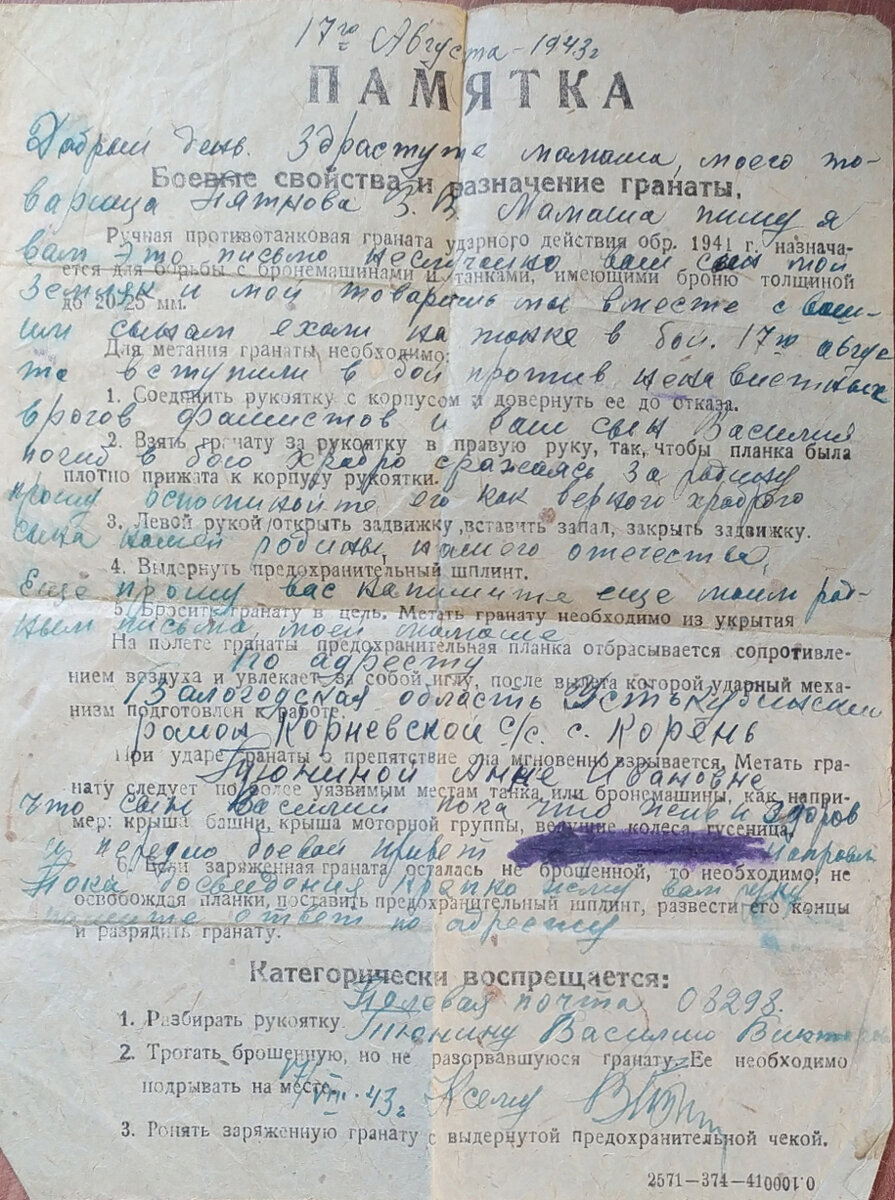 17го Августа - 1943г
ПАМЯТКА
Добрый день. Здрастуте мамаша, моего то-
Боевые свойства и назначение гранаты.
варища Пятнова З. В. Мамаша пишу я
Ручная противотанковая граната ударного действия обр. 1941 г. назнача-
вам это письмо ваш сын мой
ется для борьбы с бронемашинами и танками, имеющими броню толщиной
Земляк и мой товарищь мы вместе с ваш-
до 20-25 мм.
им сынам ехали на танке в бой. 17го авгус
Для метания гранаты необходимо:
та вступили в бой против ненавистных
1. Соединить рукоятку с корпусом и довернуть ее до отказа.
врагов фашистов и ваш сын Василий
2. Взять гранату за рукоятку в правую руку, так, чтобы планка была
погиб в бою храбро сражаясь за родину
плотно прижата к корпусу рукоятки.
прошу его как верного храброго
3. Левой рукой открыть задвижку, вставить запал, закрыть задвижку.
сына нашей родины, нашего отечества,
4. Выдернуть предохранительный шплинт.
Еще прошу вас напишите еще моим род-
5. Бросить гранату в цель. Метать гранату необходимо из укрытия
ным письмо, моей мамаше
На полете гранаты предохранительная планка отбрасывается сопротивле-
по адресту
нием воздуха и увлекает за собой иглу, после вылета которой ударный меха-
Валогодская область Устькубинский
низм подготовлен к работе.
район Корневской с/с. с. Корень
При ударе гранаты о препятствие она мгновенно взрывается. Метать гра-
Тюниной Анне Ивановне
нату следует по более уязвимым местам танка или бронемашины, как напри-
что сын Василий пока что жив и здоров
мер: крыша башни, крыша моторной группы, ведущие колеса, гусеница.
и боевой привет
6. Если заряженная граната осталась не брошенной, то необходимо, не
Пока досвидания крепко жму вам руку
освобождая планки, поставить предохранительный шплинт, развести его концы
ответ по адресту
и разрядить гранату.
Категорически воспрещается:
Палевая почта 08298.
1. Разбирать рукоятку.
Тюнину Василию
2. Трогать брошенную, но не разорвавшуюся гранату. Ее необходимо
подрывать на месте.
17/VIII-43г
3. Ронять заряженную гранату с выдернутой предохранительной чекой.
2571—374—410001 0